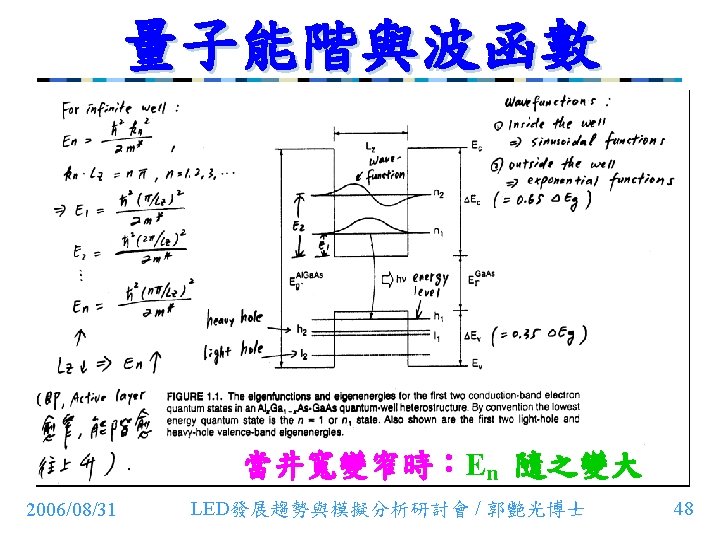 量子能階與波函數
For infinite well :
En = ℏ² kn² / 2m* ,
kn · Lz = nπ , n = 1, 2, 3, ···
⇒ E1 = ℏ² (π/Lz)² / 2m*
E2 = ℏ² (2π/Lz)² / 2m*
⋮
En = ℏ² (nπ/Lz)² / 2m*
↑
Lz ↓ ⇒ En ↑
(即, Active layer
愈窄, 能階愈
往上升).
Wavefunctions :
① Inside the well
⇒ sinusoidal functions
② outside the well
⇒ exponential functions
Lz
wave-
function
Ec
n2
ΔEc (= 0.65 ΔEg)
E2
n1
E1
Eg AlGaAs
⇨ hν energy
level
Eg GaAs
heavy hole
h1
h2
l1
ΔEv (= 0.35 ΔEg)
light hole
l2
Ev
FIGURE 1.1. The eigenfunctions and eigenenergies for the first two conduction-band electron
quantum states in an AlxGa1-xAs-GaAs quantum-well heterostructure. By convention the lowest
energy quantum state is the n = 1 or n1 state. Also shown are the first two light-hole and
heavy-hole valence-band eigenenergies.
當井寬變窄時：En 隨之變大
2006/08/31
LED發展趨勢與模擬分析研討會 / 郭艷光博士
48